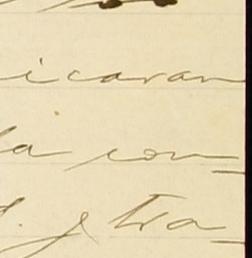 icaran
la con_
. y tra_